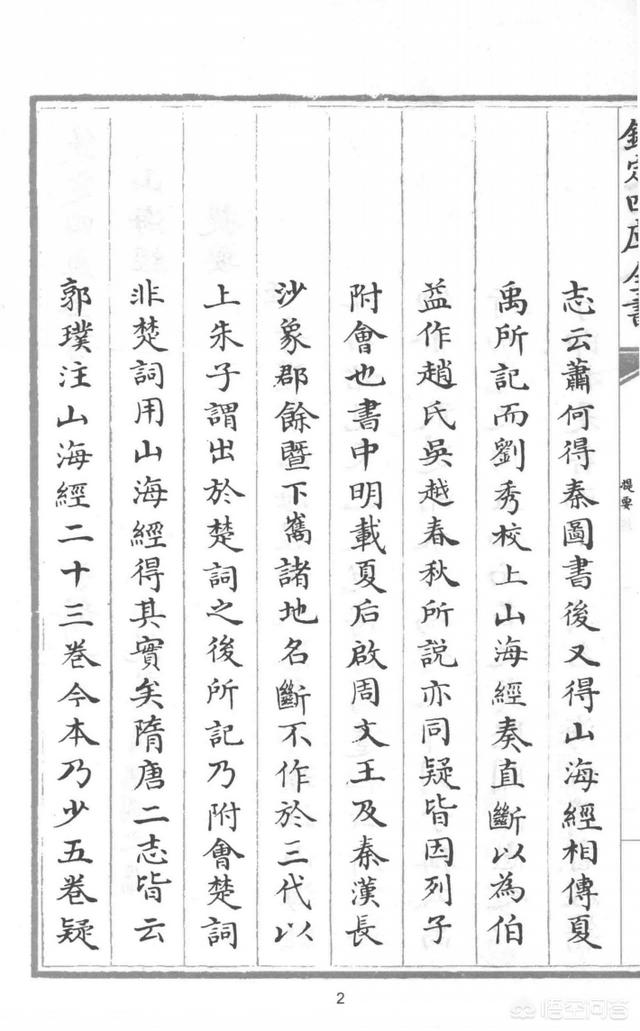 欽定四庫全書
提要
志云蕭何得秦圖書後又得山海經相傳夏
禹所記而劉秀校上山海經奏直斷以為伯
益作趙氏吳越春秋所說亦同疑皆因列子
附會也書中明載夏后啟周文王及秦漢長
沙象郡餘暨下嶲諸地名斷不作於三代以
上朱子謂出於楚詞之後所記乃附會楚詞
非楚詞用山海經得其實矣隋唐二志皆云
郭璞注山海經二十三卷今本乃少五卷疑
2
悟空问答